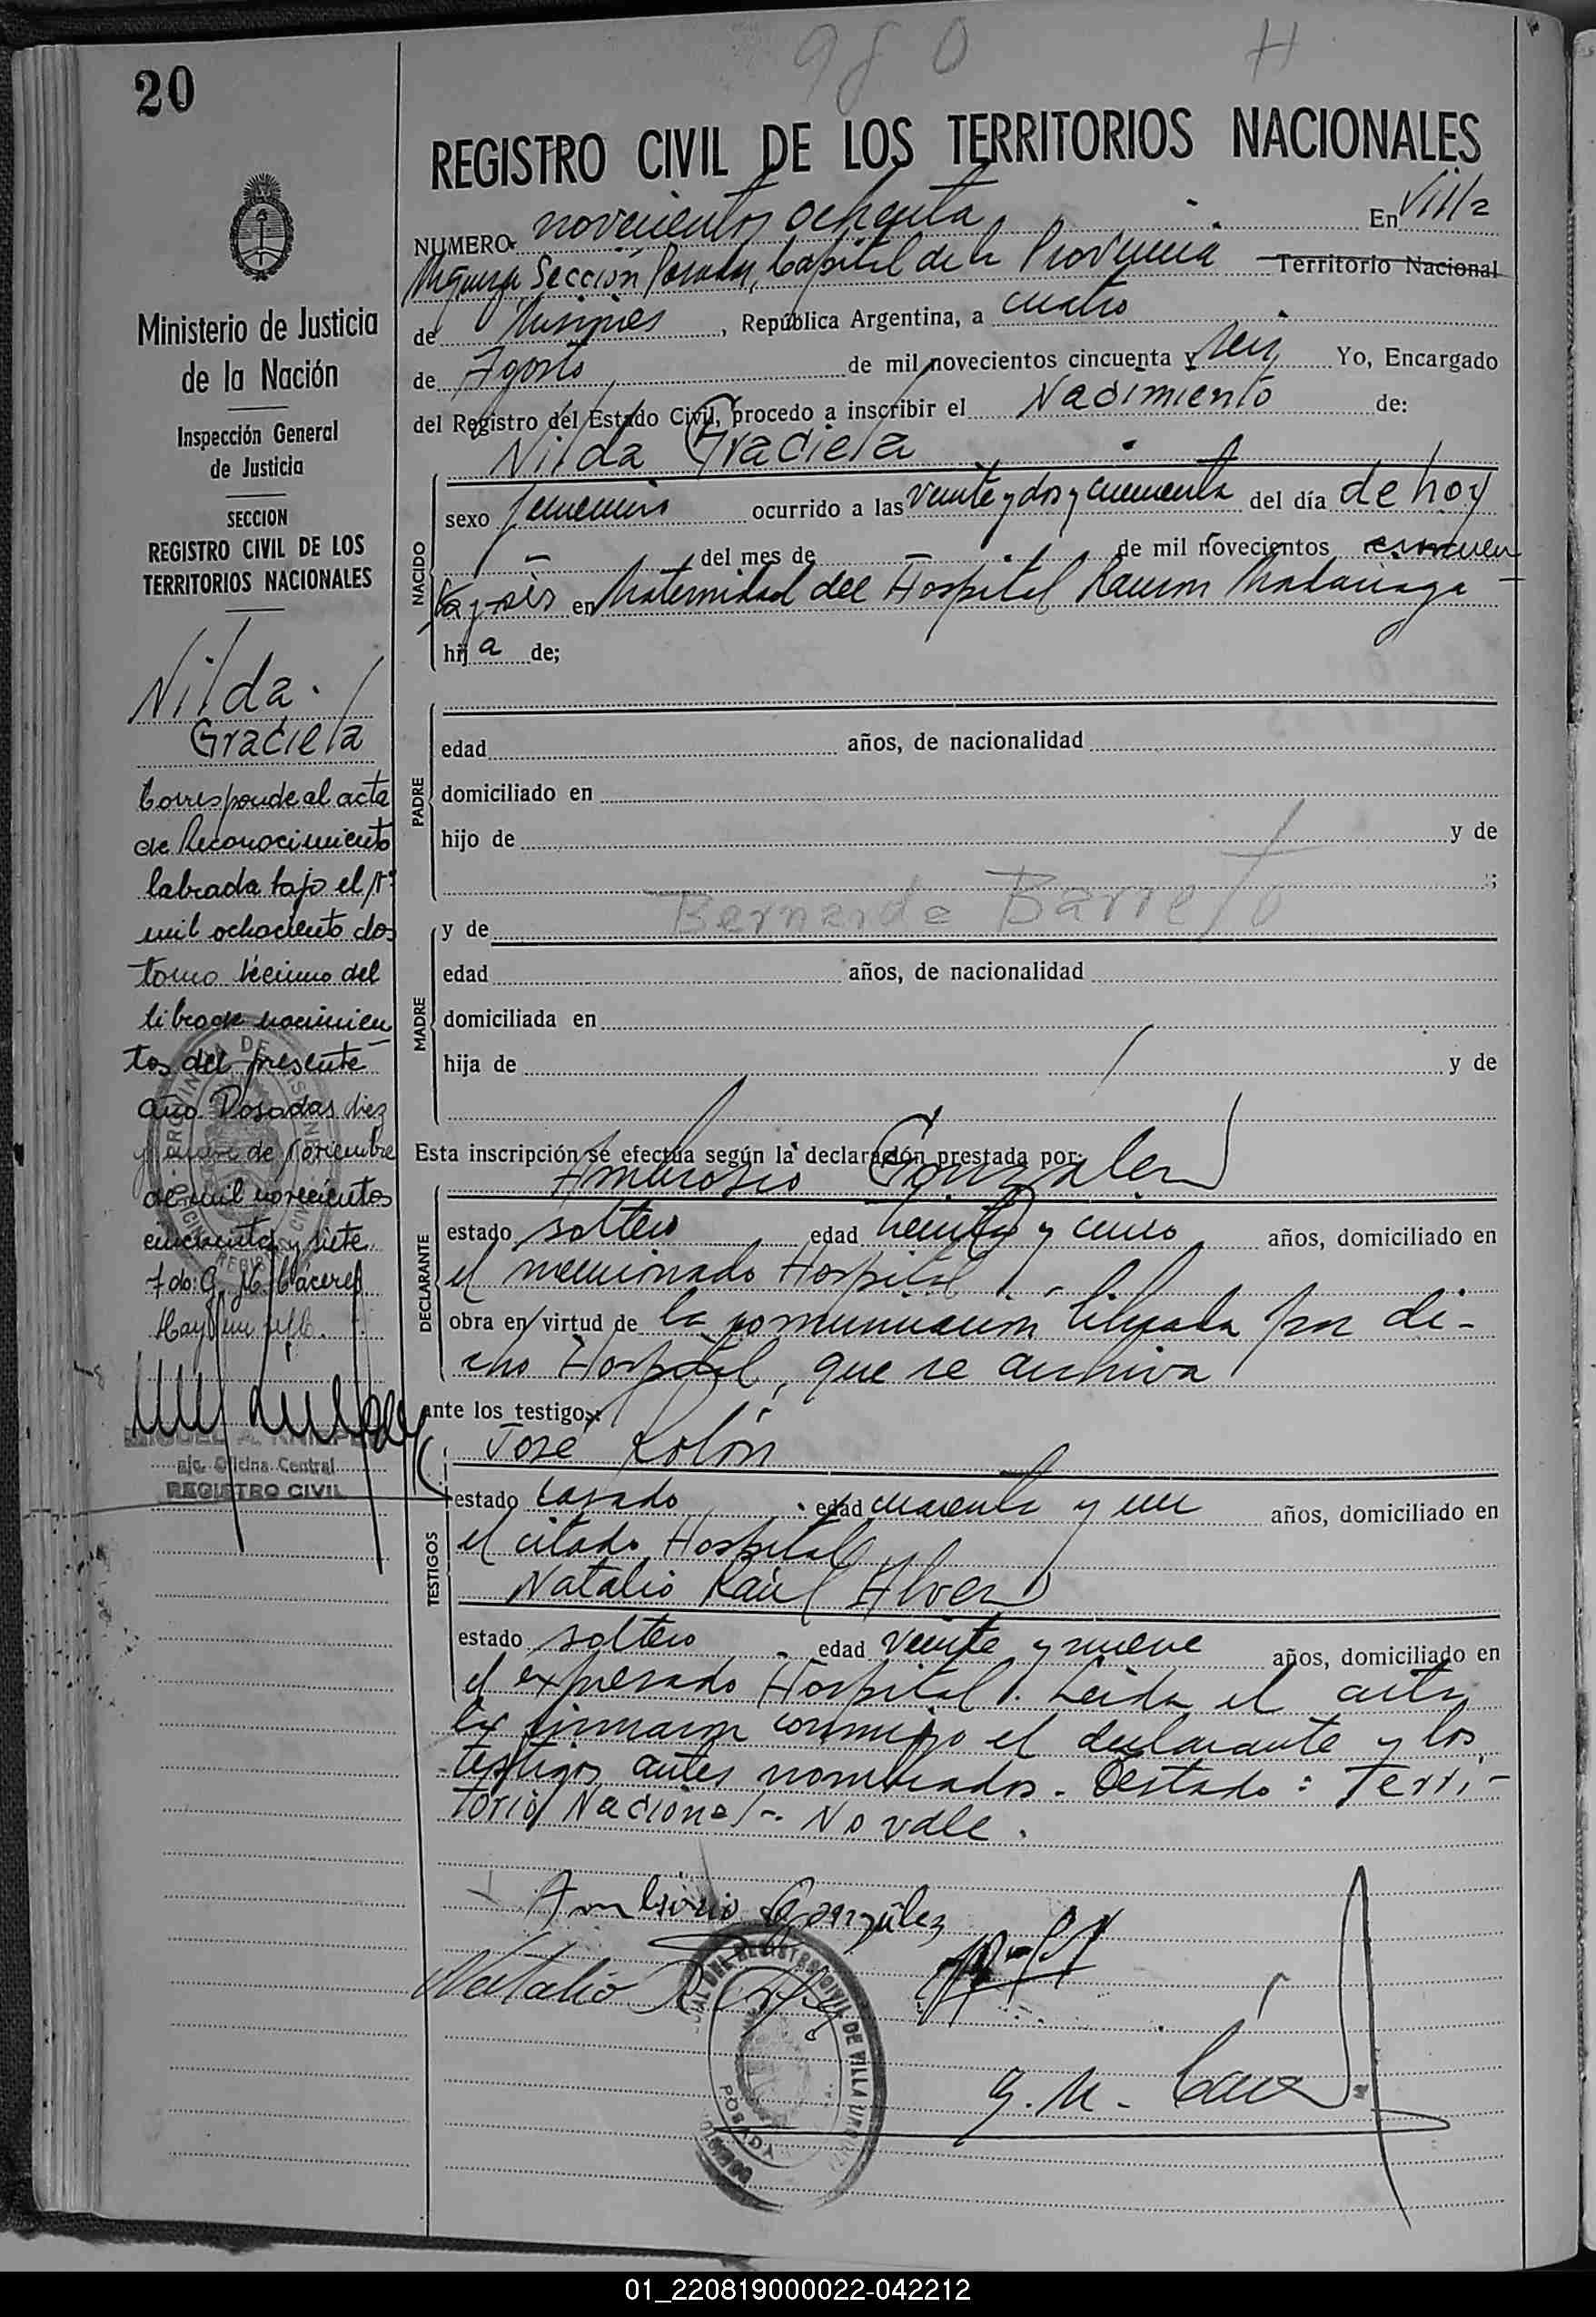 980 H
20
REGISTRO CIVIL DE LOS TERRITORIOS NACIONALES
NUMERO novecientos ochenta En Villa
Urquiza Sección Posadas, Capital de la Provincia Territorio Nacional
de Misiones, República Argentina, a cuatro
de Agosto de mil novecientos cincuenta y seis Yo, Encargado
del Registro del Estado Civil, procedo a inscribir el Nacimiento de:
Nilda Graciela
NACIDO
sexo femenino ocurrido a las veinte y dos y cincuenta del día de hoy
del mes de de mil novecientos cincuen
ta y seis en Maternidad del Hospital Ramon Madariaga
hija de;
PADRE
edad años, de nacionalidad
domiciliado en
hijo de y de
;
Bernarda Barreto
MADRE
y de
edad años, de nacionalidad
domiciliada en
hija de y de
Esta inscripción se efectúa según la declaración prestada por:
Ambrosio Gonzalez
DECLARANTE
estado soltero edad treinta y cinco años, domiciliado en
el mencionado Hospital
obra en virtud de la comunicación librada por di-
cho Hospital, que se archiva
ante los testigos:
José Rolón
TESTIGOS
estado casado edad cuarenta y un años, domiciliado en
el citado Hospital
Natalio Raúl Alvez
estado soltero edad veinte y nueve años, domiciliado en
el expresado Hospital. Leida el acta
la firmaron conmigo el declarante y los
testigos antes nombrados. Testado: Terri-
torio Nacional-. No vale.
Ambrosio González
Natalio R.
G. M.
Ministerio de Justicia
de la Nación
Inspección General
de Justicia
SECCION
REGISTRO CIVIL DE LOS
TERRITORIOS NACIONALES
Nilda
Graciela
Corresponde al acta
de Reconocimiento
labrada bajo el Nº
mil ochociento dos
tomo décimo del
libro de nacimien
tos del presente
año Posadas diez
y de Noviembre
de mil novecientos
cincuenta y siete
fdo: G. M. Cáceres
Hay un
MIGUEL A.
Oficina Central
REGISTRO CIVIL
01_220819000022-042212